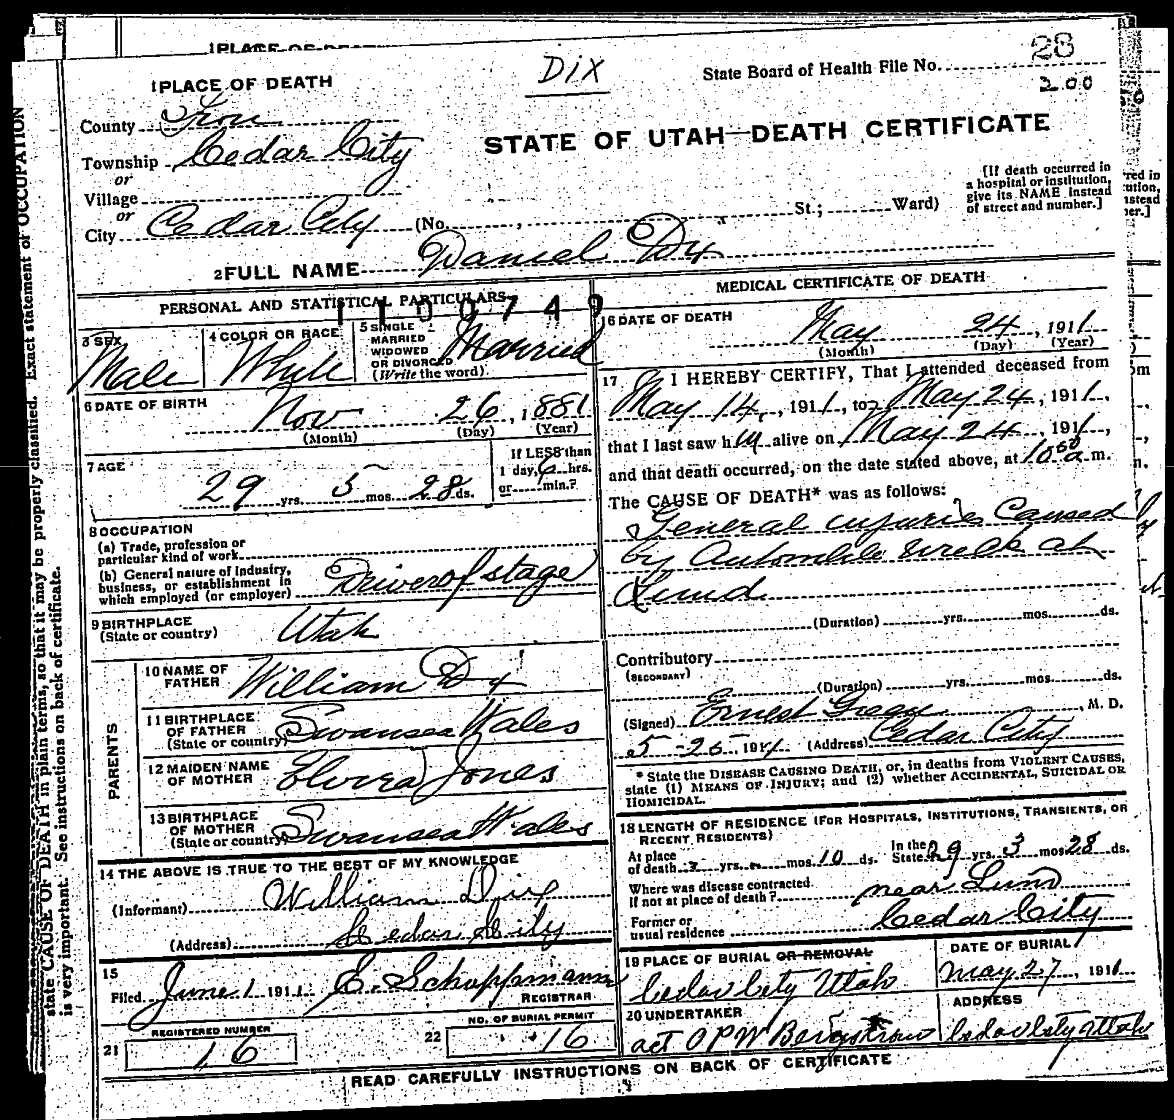 1 PLACE OF DEATH
DIX
State Board of Health File No. 28
200
County Iron
STATE OF UTAH—DEATH CERTIFICATE
Township Cedar City
or
Village
or
City Cedar City (No. , St.; Ward)
[If death occurred in
a hospital or institution,
give its NAME instead
of street and number.]
2 FULL NAME Daniel Dix
PERSONAL AND STATISTICAL PARTICULARS
1100749
3 SEX
Male
4 COLOR OR RACE
White
5 SINGLE
MARRIED
WIDOWED
OR DIVORCED
(Write the word)
Married
6 DATE OF BIRTH
Nov 26, 1881
(Month) (Day) (Year)
7 AGE
29 yrs. 5 mos. 28 ds.
If LESS than
1 day, hrs.
or min.?
8 OCCUPATION
(a) Trade, profession or
particular kind of work
(b) General nature of industry,
business, or establishment in
which employed (or employer)
Driver of stage
9 BIRTHPLACE
(State or country) Utah
PARENTS
10 NAME OF
FATHER William Dix
11 BIRTHPLACE
OF FATHER
(State or country) Swansea Wales
12 MAIDEN NAME
OF MOTHER Elvira Jones
13 BIRTHPLACE
OF MOTHER
(State or country) Swansea Wales
14 THE ABOVE IS TRUE TO THE BEST OF MY KNOWLEDGE
(Informant) William Dix
(Address) Cedar City
15
Filed June 1 1911 E. Schoppmann
REGISTRAR
REGISTERED NUMBER
21 16
NO. OF BURIAL PERMIT
22 16
MEDICAL CERTIFICATE OF DEATH
16 DATE OF DEATH
May 24, 1911
(Month) (Day) (Year)
17 I HEREBY CERTIFY, That I attended deceased from
May 14, 1911, to May 24, 1911,
that I last saw him alive on May 24, 1911,
and that death occurred, on the date stated above, at 10 50 a m.
The CAUSE OF DEATH* was as follows:
General injuries Caused
by Automobile wreck at
Lund
(Duration) yrs. mos. ds.
Contributory
(SECONDARY)
(Duration) yrs. mos. ds.
(Signed) Ernest Green, M. D.
5-25, 1911 (Address) Cedar City
* State the DISEASE CAUSING DEATH, or, in deaths from VIOLENT CAUSES,
state (1) MEANS OF INJURY; and (2) whether ACCIDENTAL, SUICIDAL OR
HOMICIDAL.
18 LENGTH OF RESIDENCE (FOR HOSPITALS, INSTITUTIONS, TRANSIENTS, OR
RECENT RESIDENTS)
At place
of death yrs. mos. 10 ds.
In the
State 29 yrs. 3 mos. 28 ds.
Where was disease contracted
if not at place of death? near Lund
Former or
usual residence Cedar City
19 PLACE OF BURIAL OR REMOVAL
Cedar City Utah
DATE OF BURIAL
May 27, 1911
20 UNDERTAKER
act O P W Bergstrom
ADDRESS
Cedar City Utah
READ CAREFULLY INSTRUCTIONS ON BACK OF CERTIFICATE
state CAUSE OF DEATH in plain terms, so that it may be properly classified. Exact statement of OCCUPATION
is very important. See instructions on back of certificate.